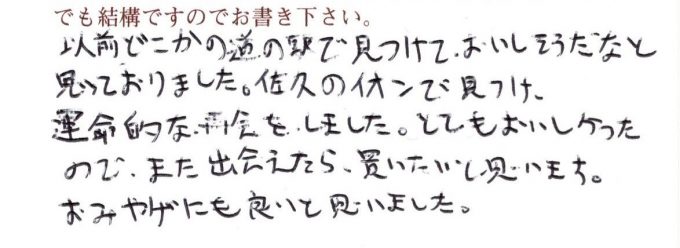 でも結構ですのでお書き下さい。
以前どこかの道の駅で見つけて、おいしそうだなと
思っておりました。佐久のイオンで見つけ、
運命的な再会をしました。とてもおいしかった
ので、また出会えたら、買いたいと思います。
おみやげにも良いと思いました。